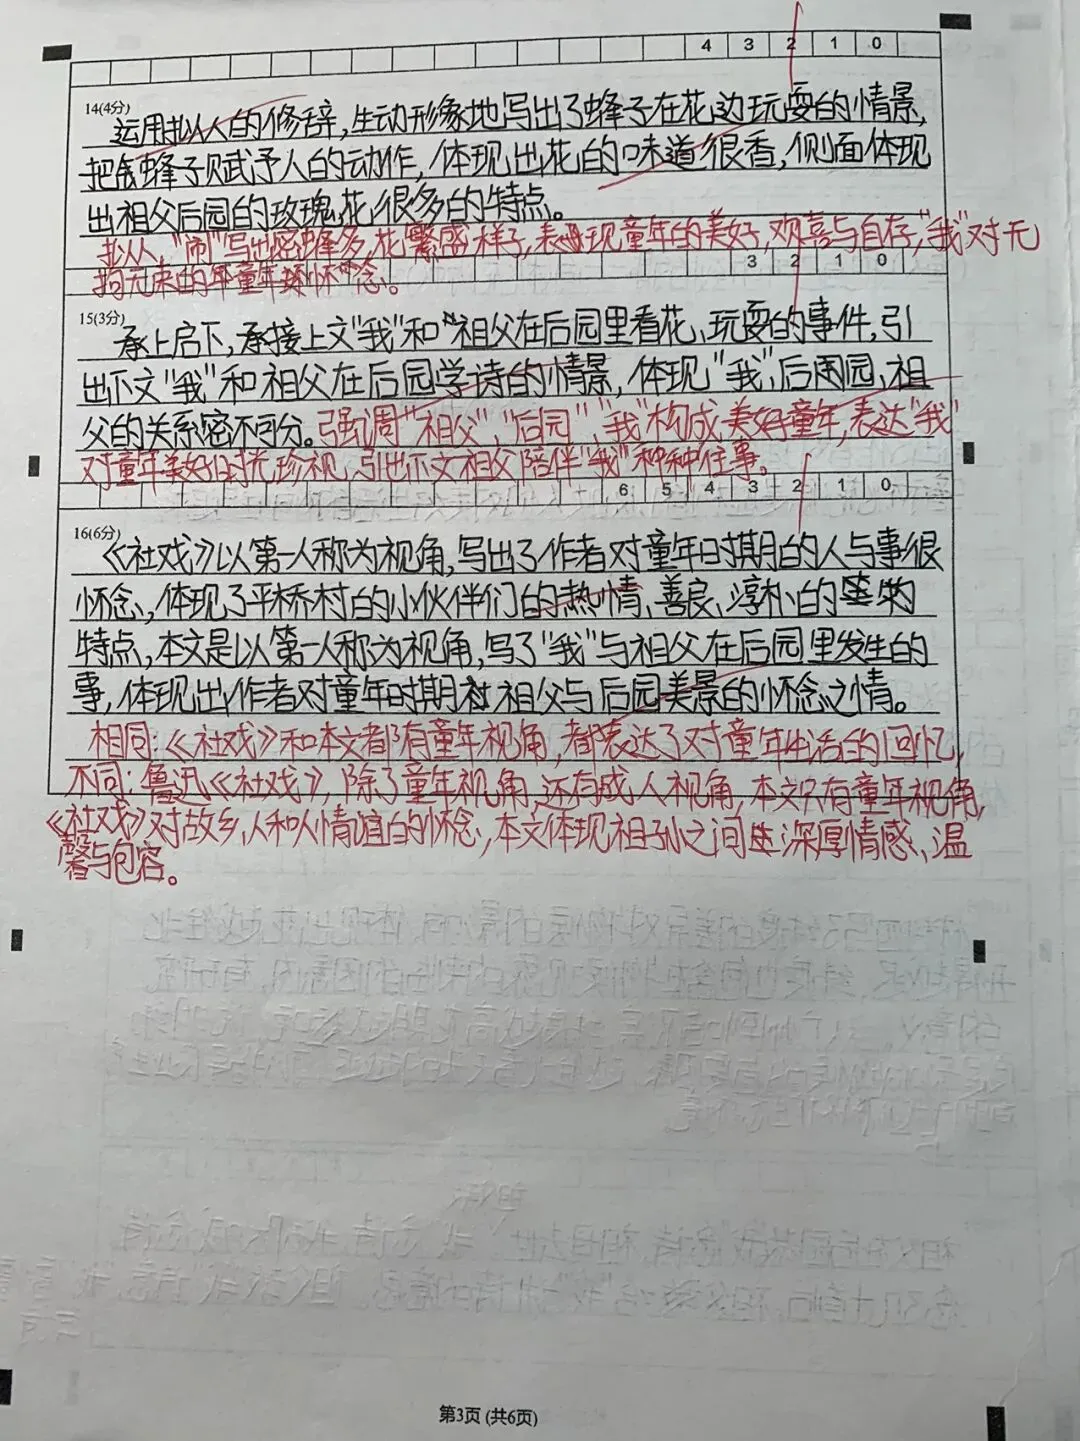 4 3 2 1 0
14(4分)
运用拟人的修辞,生动形象地写出了蜂子在花边玩耍的情景,
把蜂子赋予人的动作,体现出花的味道很香,侧面体现
出祖父后园的玫瑰花很多的特点。
拟人,"闹"写出蜜蜂多,花繁盛样子,表现童年的美好,欢喜与自存,"我"对无
拘无束的童年怀念。
3 2 1 0
15(3分)
承上启下,承接上文"我"和祖父在后园里看花、玩耍的事件,引
出下文"我"和祖父在后园学诗的情景,体现"我"、后园、祖
父的关系密不可分。强调"祖父","后园","我"构成美好童年,表达"我"
对童年美好时光珍视,引出下文祖父陪伴"我"种种往事。
6 5 4 3 2 1 0
16(6分)
《社戏》以第一人称为视角,写出了作者对童年时期的人与事很
怀念,体现了平桥村的小伙伴们的热情、善良、淳朴的
特点,本文是以第一人称为视角,写了"我"与祖父在后园里发生的
事,体现出作者对童年时期祖父与后园美景的怀念之情。
相同:《社戏》和本文都有童年视角,都表达了对童年生活的回忆,
不同:鲁迅《社戏》,除了童年视角,还有成人视角,本文只有童年视角,
《社戏》对故乡,人和人情谊的怀念,本文体现祖孙之间深厚情感、温
馨与包容。
第3页 (共6页)